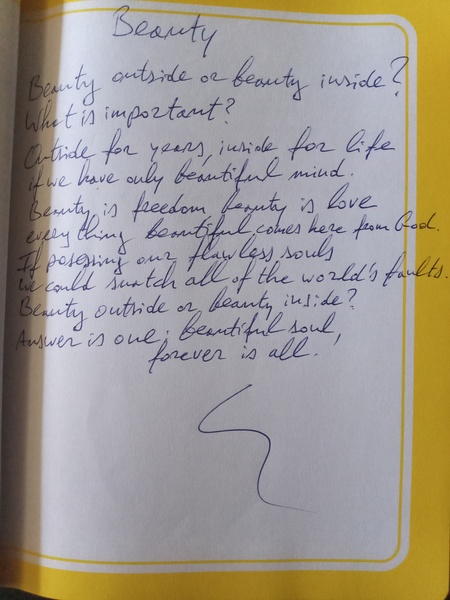 Beauty
Beauty outside or beauty inside?
What is important?
Outside for years, inside for life
if we have only beautiful mind.
Beauty is freedom, beauty is love
everything beautiful comes here from God.
If posessing our flawless souls
we could snatch all of the world's faults.
Beauty outside or beauty inside?
Answer is one: beautiful soul,
forever is all!